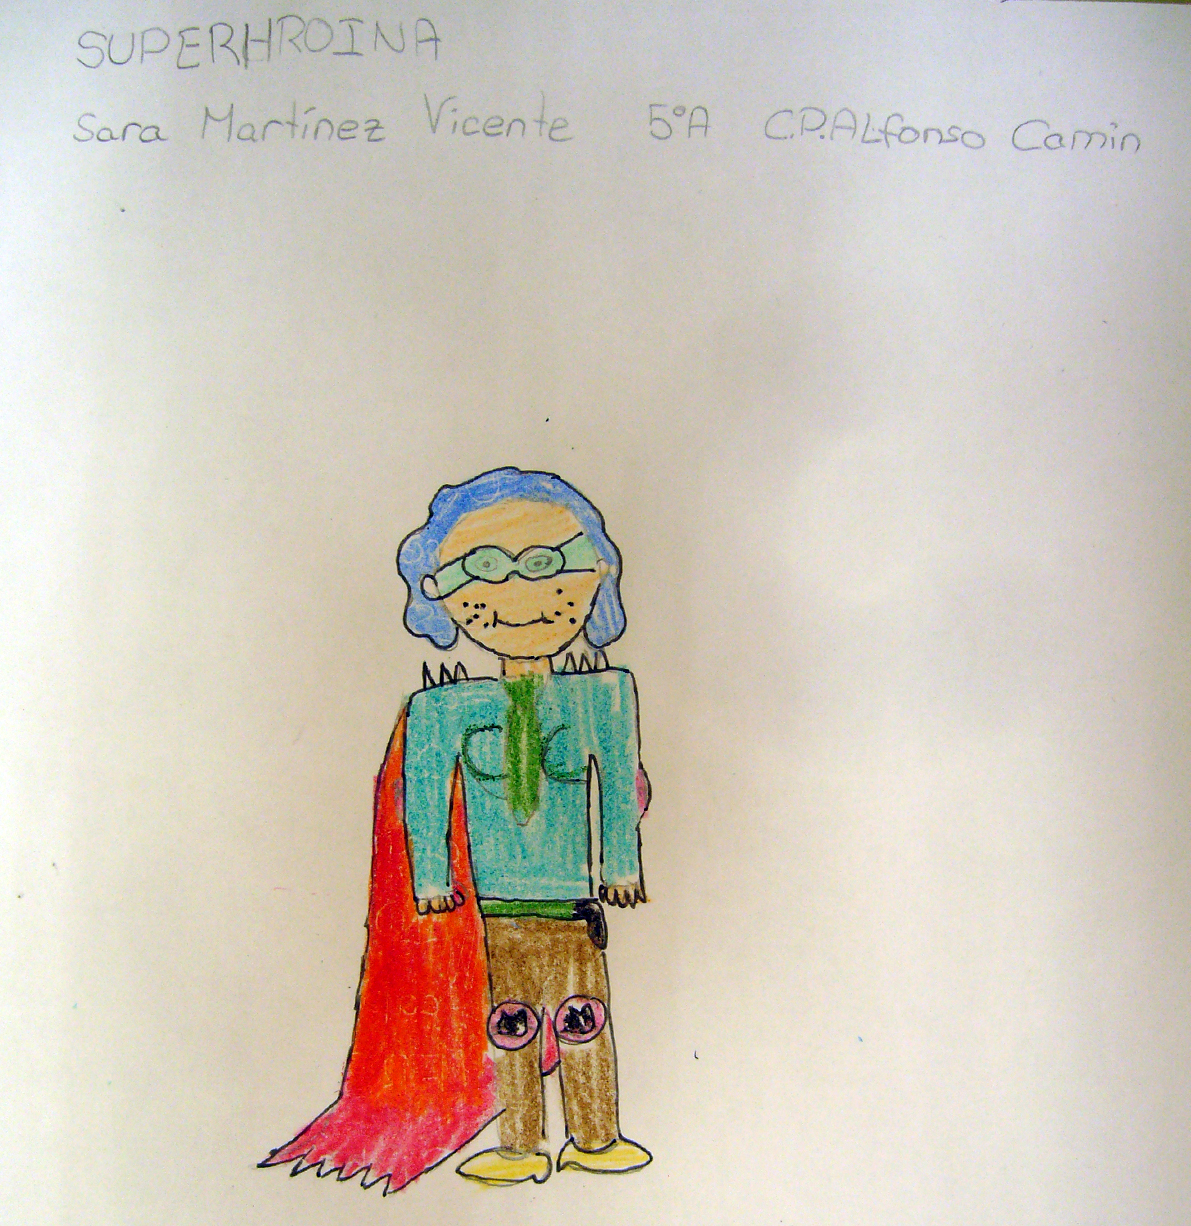 SUPERHROINA
Sara Martínez Vicente 5ºA C.P.ALfonso Camin